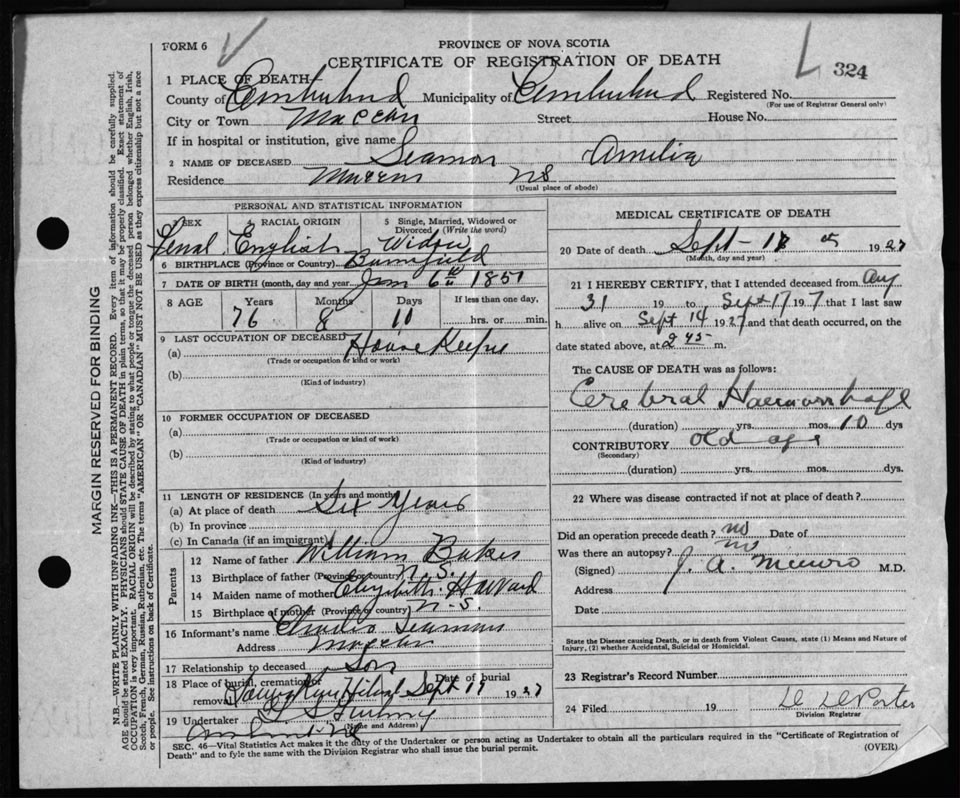 FORM 6
PROVINCE OF NOVA SCOTIA
CERTIFICATE OF REGISTRATION OF DEATH
324
1 PLACE OF DEATH
County of Cumberland Municipality of Cumberland Registered No.
(For use of Registrar General only)
City or Town Maccan Street House No.
If in hospital or institution, give name
2 NAME OF DECEASED Seaman Amelia
Residence Maccan NS
(Usual place of abode)
PERSONAL AND STATISTICAL INFORMATION
3 SEX 4 RACIAL ORIGIN 5 Single, Married, Widowed or Divorced (Write the word)
Femal English Widow
6 BIRTHPLACE (Province or Country)
7 DATE OF BIRTH (month, day and year) Jan 6th 1851
8 AGE Years Months Days If less than one day,
76 8 11 hrs. or min.
9 LAST OCCUPATION OF DECEASED House Keeper
(a)
(Trade or occupation or kind or work)
(b)
(Kind of industry)
10 FORMER OCCUPATION OF DECEASED
(a)
(Trade or occupation or kind of work)
(b)
(Kind of industry)
11 LENGTH OF RESIDENCE (In years and months)
(a) At place of death Six years
(b) In province
(c) In Canada (if an immigrant)
Parents
12 Name of father William Baker
13 Birthplace of father (Province or country) N.S.
14 Maiden name of mother Elizabeth Harvard
15 Birthplace of mother (Province or country) N-S.
16 Informant's name Charlie Seaman
Address Maccan
17 Relationship to deceased Son
18 Place of burial, cremation or removal Date of burial
Sept 19 1927
19 Undertaker
(Name and Address)
Amherst NS
MEDICAL CERTIFICATE OF DEATH
20 Date of death Sept - 1927
(Month, day and year)
21 I HEREBY CERTIFY, that I attended deceased from Aug
31 19 to Sept 17 1927 that I last saw
h alive on Sept 14 1927 and that death occurred, on the
date stated above, at 2 45 m.
The CAUSE OF DEATH was as follows:
Cerebral Haemorrhage
(duration) yrs. mos. 10 dys
CONTRIBUTORY old age
(Secondary)
(duration) yrs. mos. dys.
22 Where was disease contracted if not at place of death?
Did an operation precede death? no Date of
Was there an autopsy? no
(Signed) J. A. Munro M.D.
Address
Date
State the Disease causing Death, or in death from Violent Causes, state (1) Means and Nature of
Injury, (2) whether Accidental, Suicidal or Homicidal.
23 Registrar's Record Number
24 Filed 19 Porter
Division Registrar
SEC. 46—Vital Statistics Act makes it the duty of the Undertaker or person acting as Undertaker to obtain all the particulars required in the "Certificate of Registration of
Death" and to fyle the same with the Division Registrar who shall issue the burial permit.
(OVER)
MARGIN RESERVED FOR BINDING
N.B.—WRITE PLAINLY WITH UNFADING INK—THIS IS A PERMANENT RECORD. Every item of information should be carefully supplied.
AGE should be stated EXACTLY. PHYSICIANS should STATE CAUSE OF DEATH in plain terms, so that it may be properly classified. Exact statement of
OCCUPATION is very important. RACIAL ORIGIN will be described by stating to what people or tongue the deceased person belonged whether English, Irish,
Scotch, French, German, Russian, Ruthenian, etc. The terms "AMERICAN" OR "CANADIAN" MUST NOT BE USED as they express citizenship but not a race
or people. See instructions on back of Certificate.